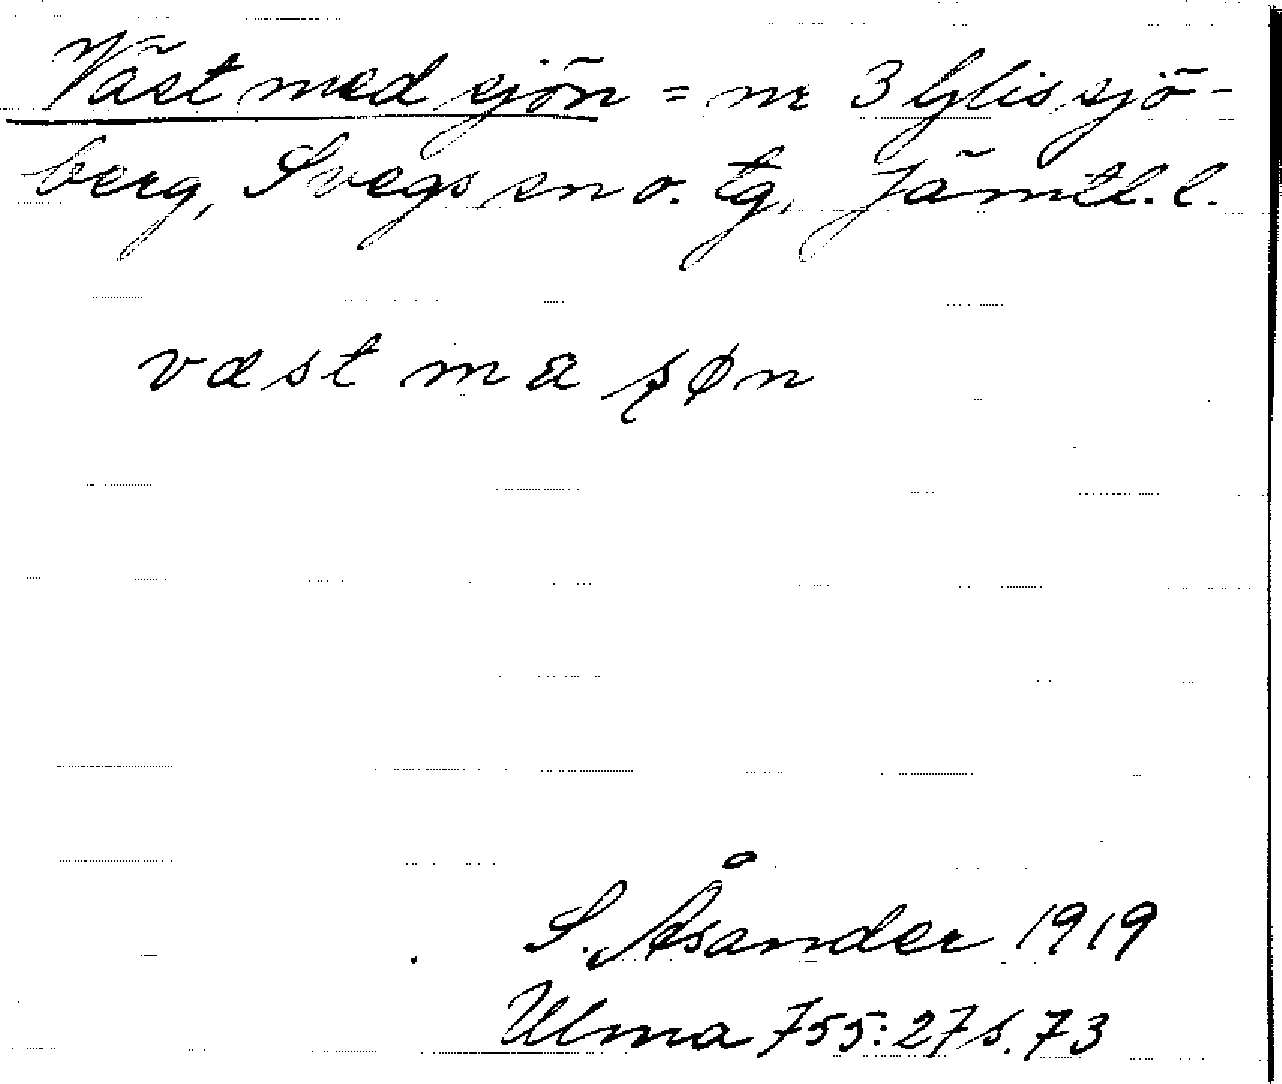 Väst med sjön = nr 3 Glissjö-
berg, Svegs sn o. tg, Jämtl. l.
væst mæ ʂøn
S. Åsander 1919
Ulma 755: 27 s. 73